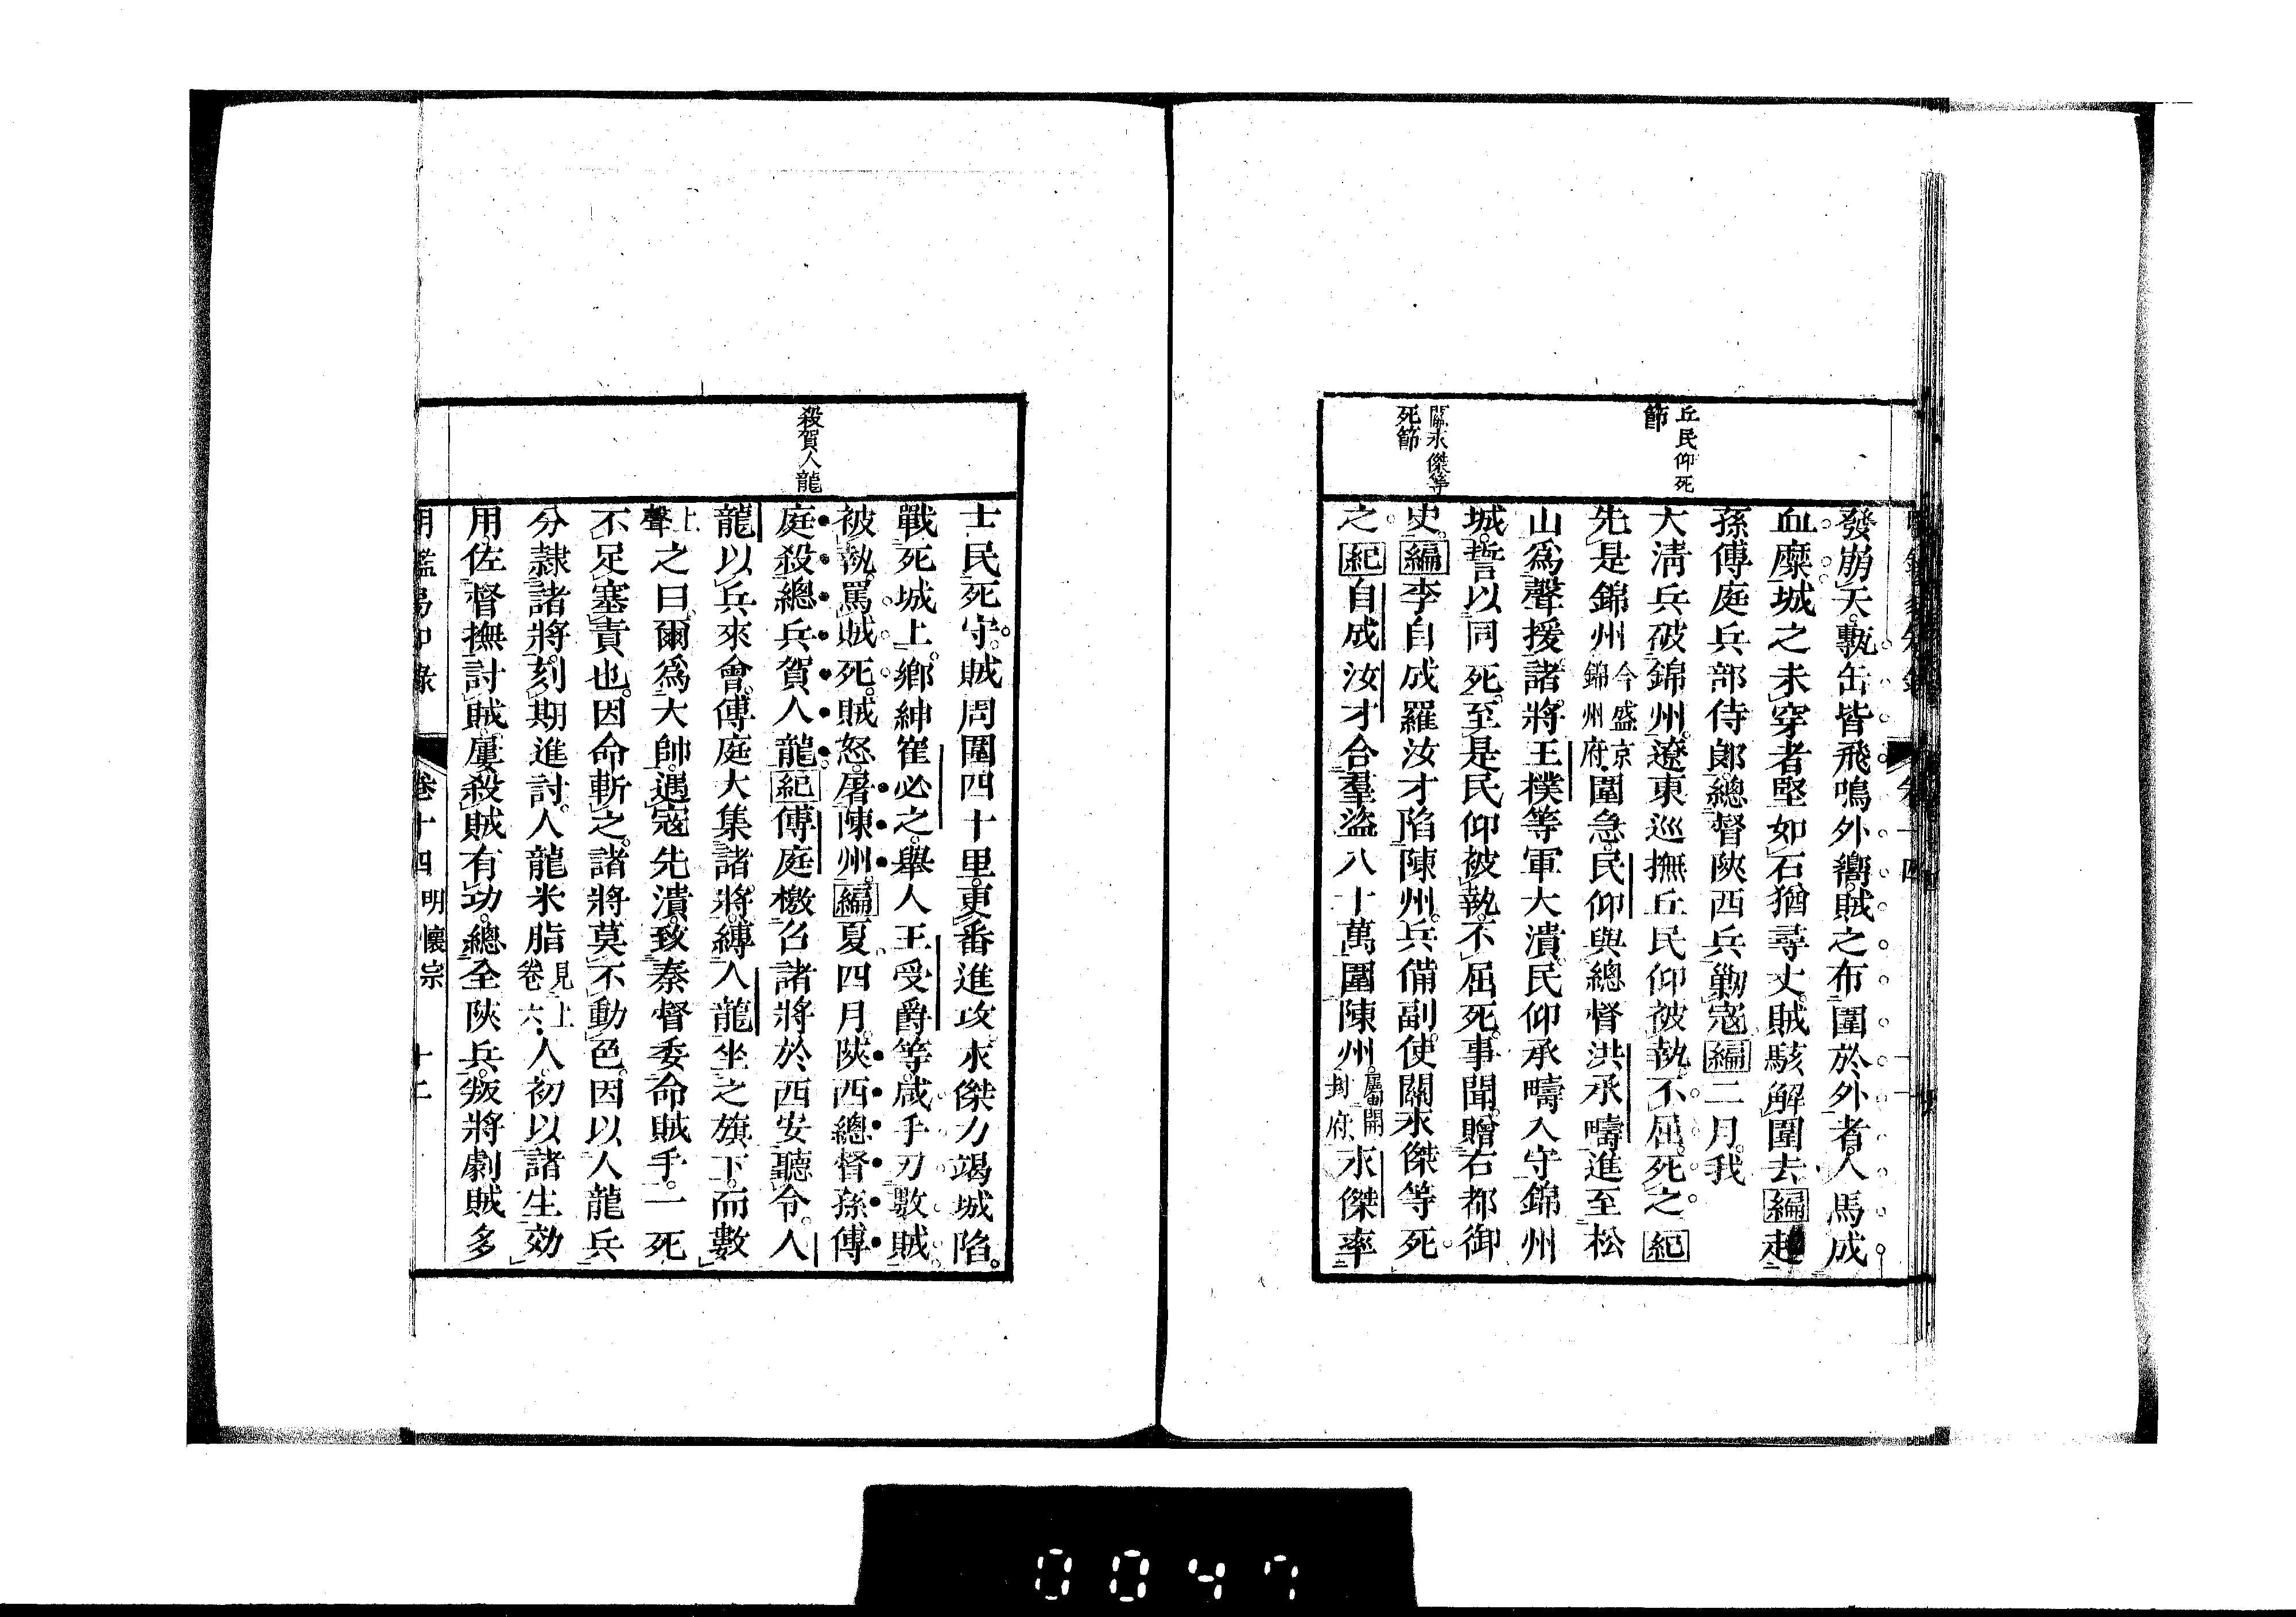 丘民仰死
節
關永傑等
死節
發崩天甎缶皆飛鳴外嚮。賊之布圍於外者人馬成
血糜城之未穿者堅如石猶尋丈。賊駭解圍去編起
孫傳庭兵部侍郎。總督陝西兵勦寇編二月。我
大淸兵破錦州。遼東巡撫丘民仰被執。不屈。死之。紀
先是錦州今盛京
錦州府圍急。民仰與總督洪承疇進至松
山爲聲援諸將王樸等軍大潰。民仰承疇入守錦州
城。誓以同死。至是民仰被執。不屈死。事聞。贈右都御
史。編李自成羅汝才陷陳州。兵備副使關永傑等死
之。紀自成汝才合羣盜八十萬圍陳州。屬開
封府、永傑率
殺賀人龍
士民死守。賊周圍四十里。更番進攻。永傑力竭城陷。
戰死城上。鄕紳崔必之。舉人王受爵等。咸手刃數賊
被執。罵賊死。賊怒。屠陳州。編夏四月。陝西總督孫傳
庭殺總兵賀人龍。紀傳庭檄召諸將於西安聽令。人
龍以兵來會。傳庭大集諸將。縛人龍坐之旗下。而數
上
聲之曰。爾爲大帥。遇寇先潰。致秦督委命賊手。一死
不足塞責也。因命斬之。諸將莫不動色。因以人龍兵
分隷諸將。刻期進討。人龍米脂見上
卷六人。初以諸生効
用。佐督撫討賊。屢殺賊有功。總全陝兵。叛將劇賊多
卷十四 明懷宗 十二
0047